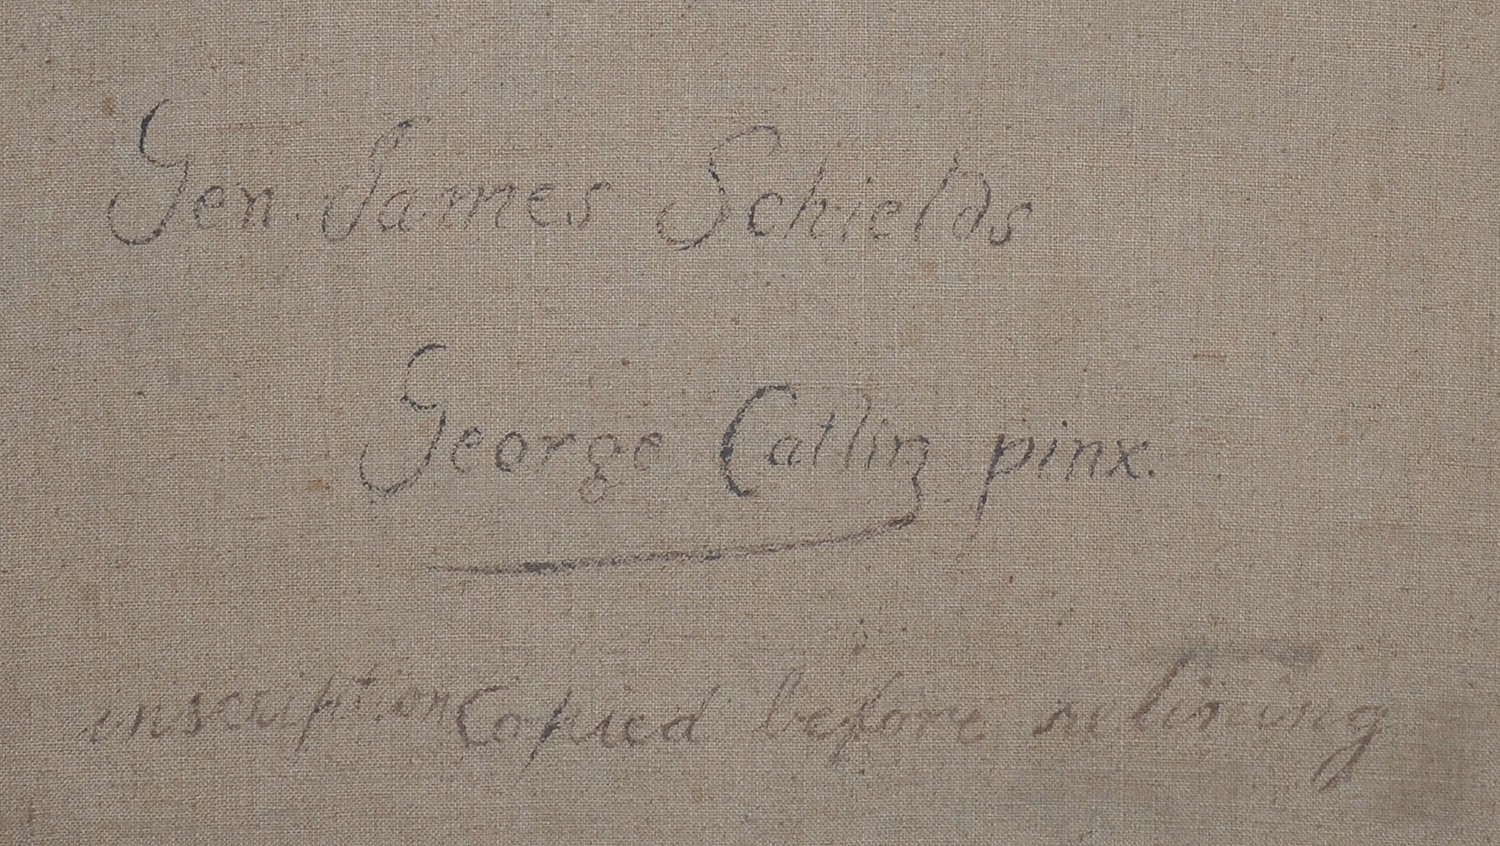 Gen. James Schields
George Catlin pinx.
inscription Copied before relining